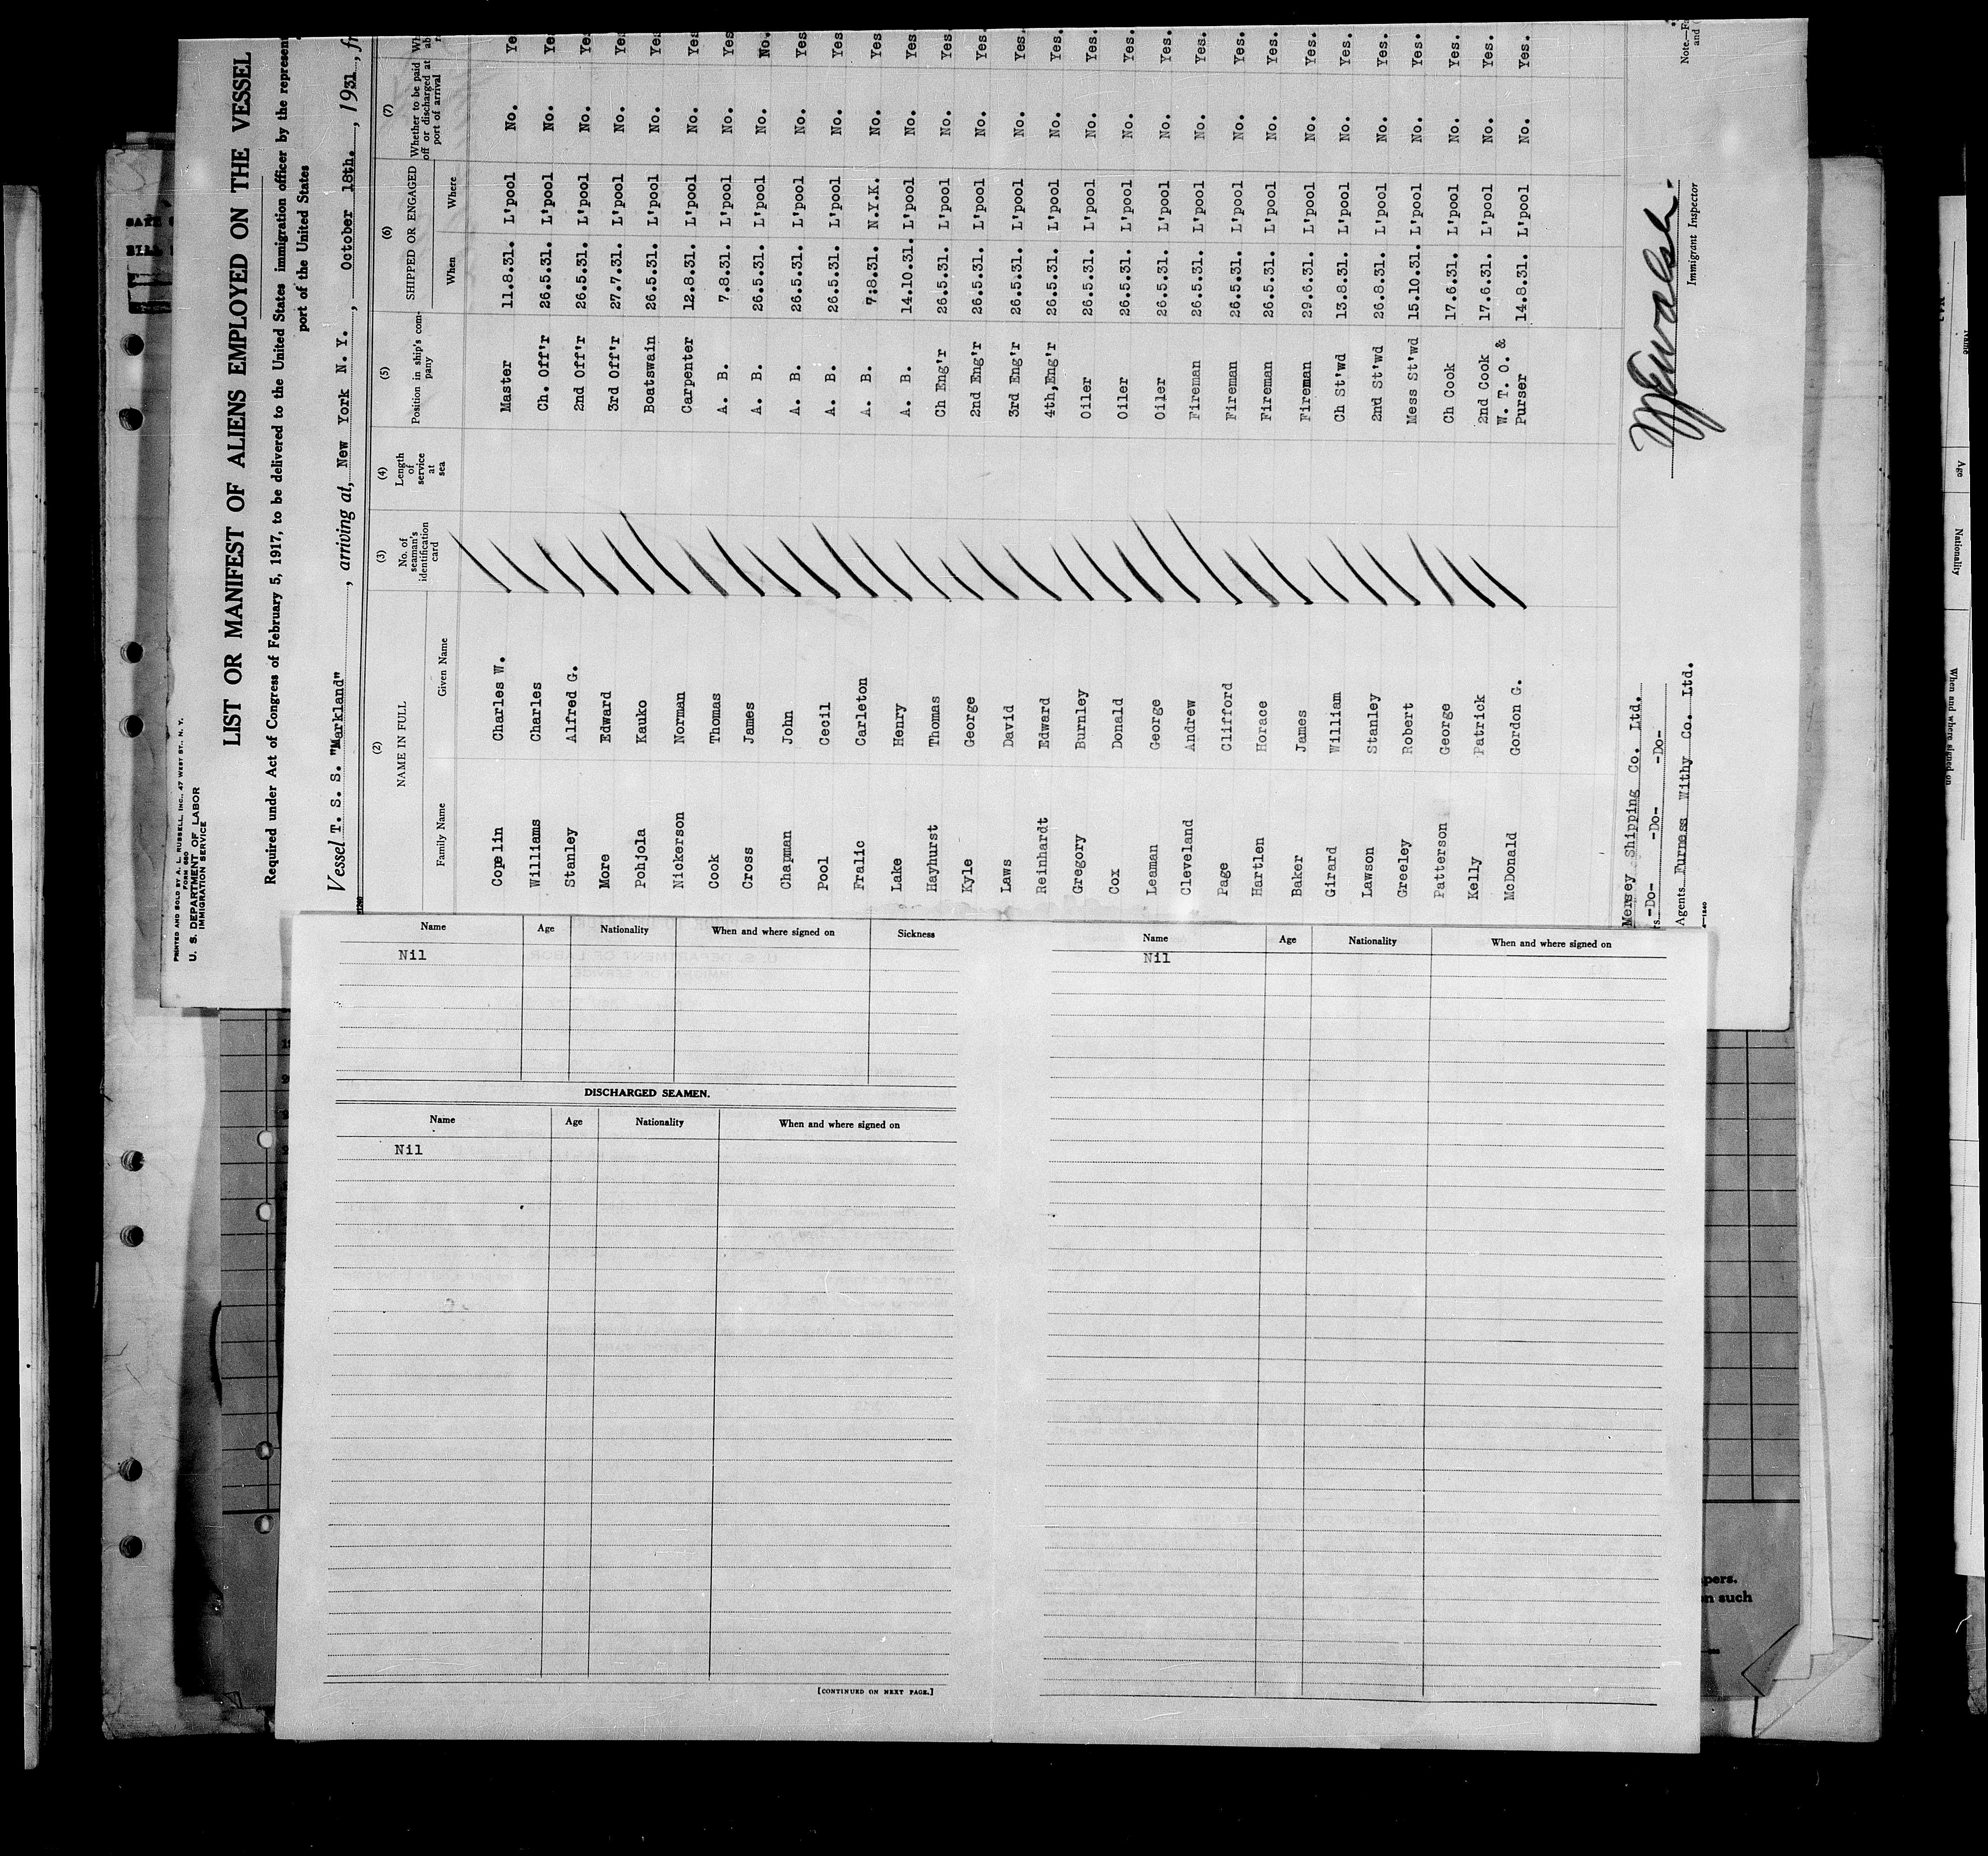 PRINTED AND SOLD BY A. L. RUSSELL, INC., 47 WEST ST., N. Y.
FORM 680
U. S. DEPARTMENT OF LABOR
IMMIGRATION SERVICE
LIST OR MANIFEST OF ALIENS EMPLOYED ON THE VESSEL
Required under Act of Congress of February 5, 1917, to be delivered to the United States immigration officer by the represen
port of the United States
Vessel T. S. S. "Markland", arriving at, New York N. Y., October 18th., 1931, fr
(2) (3) (4) (5) (6) (7)
NAME IN FULL No. of seaman's identification card Length of service at sea Position in ship's company SHIPPED OR ENGAGED Whether to be paid off or discharged at port of arrival
Family Name Given Name When Where
Copelin Charles W. Master 11.8.31. L'pool No. Ye
Williams Charles Ch. Off'r 26.5.31. L'pool No. Ye
Stanley Alfred G. 2nd Off'r 26.5.31. L'pool No. Ye
More Edward 3rd Off'r 27.7.31. L'pool No. Ye
Pohjola Kauko Boatswain 26.5.31. L'pool No. Ye
Nickerson Norman Carpenter 12.8.31. L'pool No. Yes
Cook Thomas A. B. 7.8.31. L'pool No. Yes
Cross James A. B. 26.5.31. L'pool No. No.
Chapman John A. B. 26.5.31. L'pool No. Yes
Pool Cecil A. B. 26.5.31. L'pool No. Yes
Fralic Carleton A. B. 7:8.31. N.Y.K. No. Yes
Lake Henry A. B. 14.10.31. L'pool No. Yes.
Hayhurst Thomas Ch Eng'r 26.5.31. L'pool No. Yes.
Kyle George 2nd Eng'r 26.5.31. L'pool No. Yes.
Laws David 3rd Eng'r 26.5.31. L'pool No. Yes.
Reinhardt Edward 4th,Eng'r 26.5.31. L'pool No. Yes.
Gregory Burnley Oiler 26.5.31. L'pool No. Yes.
Cox Donald Oiler 26.5.31. L'pool No. Yes.
Leaman George Oiler 26.5.31. L'pool No. Yes.
Cleveland Andrew Fireman 26.5.31. L'pool No. Yes.
Page Clifford Fireman 26.5.31. L'pool No. Yes.
Hartlen Horace Fireman 26.5.31. L'pool No. Yes.
Baker James Fireman 29.6.31. L'pool No. Yes.
Girard William Ch St'wd 13.8.31. L'pool No. Yes.
Lawson Stanley 2nd St'wd 26.8.31. L'pool No. Yes.
Greeley Robert Mess St'wd 15.10.31. L'pool No. Yes.
Patterson George Ch Cook 17.6.31. L'pool No. Yes.
Kelly Patrick 2nd Cook 17.6.31. L'pool No. Yes.
W. T. O. &
McDonald Gordon G. Purser 14.8.31. L'pool No. Yes.
Mersey Shipping Co. Ltd.
-Do- -Do- -Do-
Agents Furness Withy Co. Ltd.
Immigrant Inspector
Name Age Nationality When and where signed on Sickness
Nil
DISCHARGED SEAMEN.
Name Age Nationality When and where signed on
Nil
[CONTINUED ON NEXT PAGE.]
Name Age Nationality When and where signed on
Nil
Name Age Nationality When and where signed on
pers.
n such